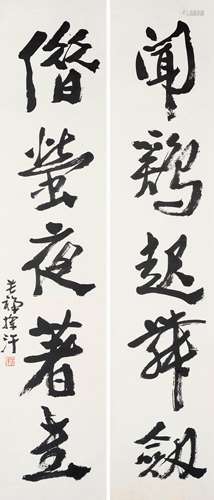 聞鷄起舞劍
借螢夜著書
揮汗